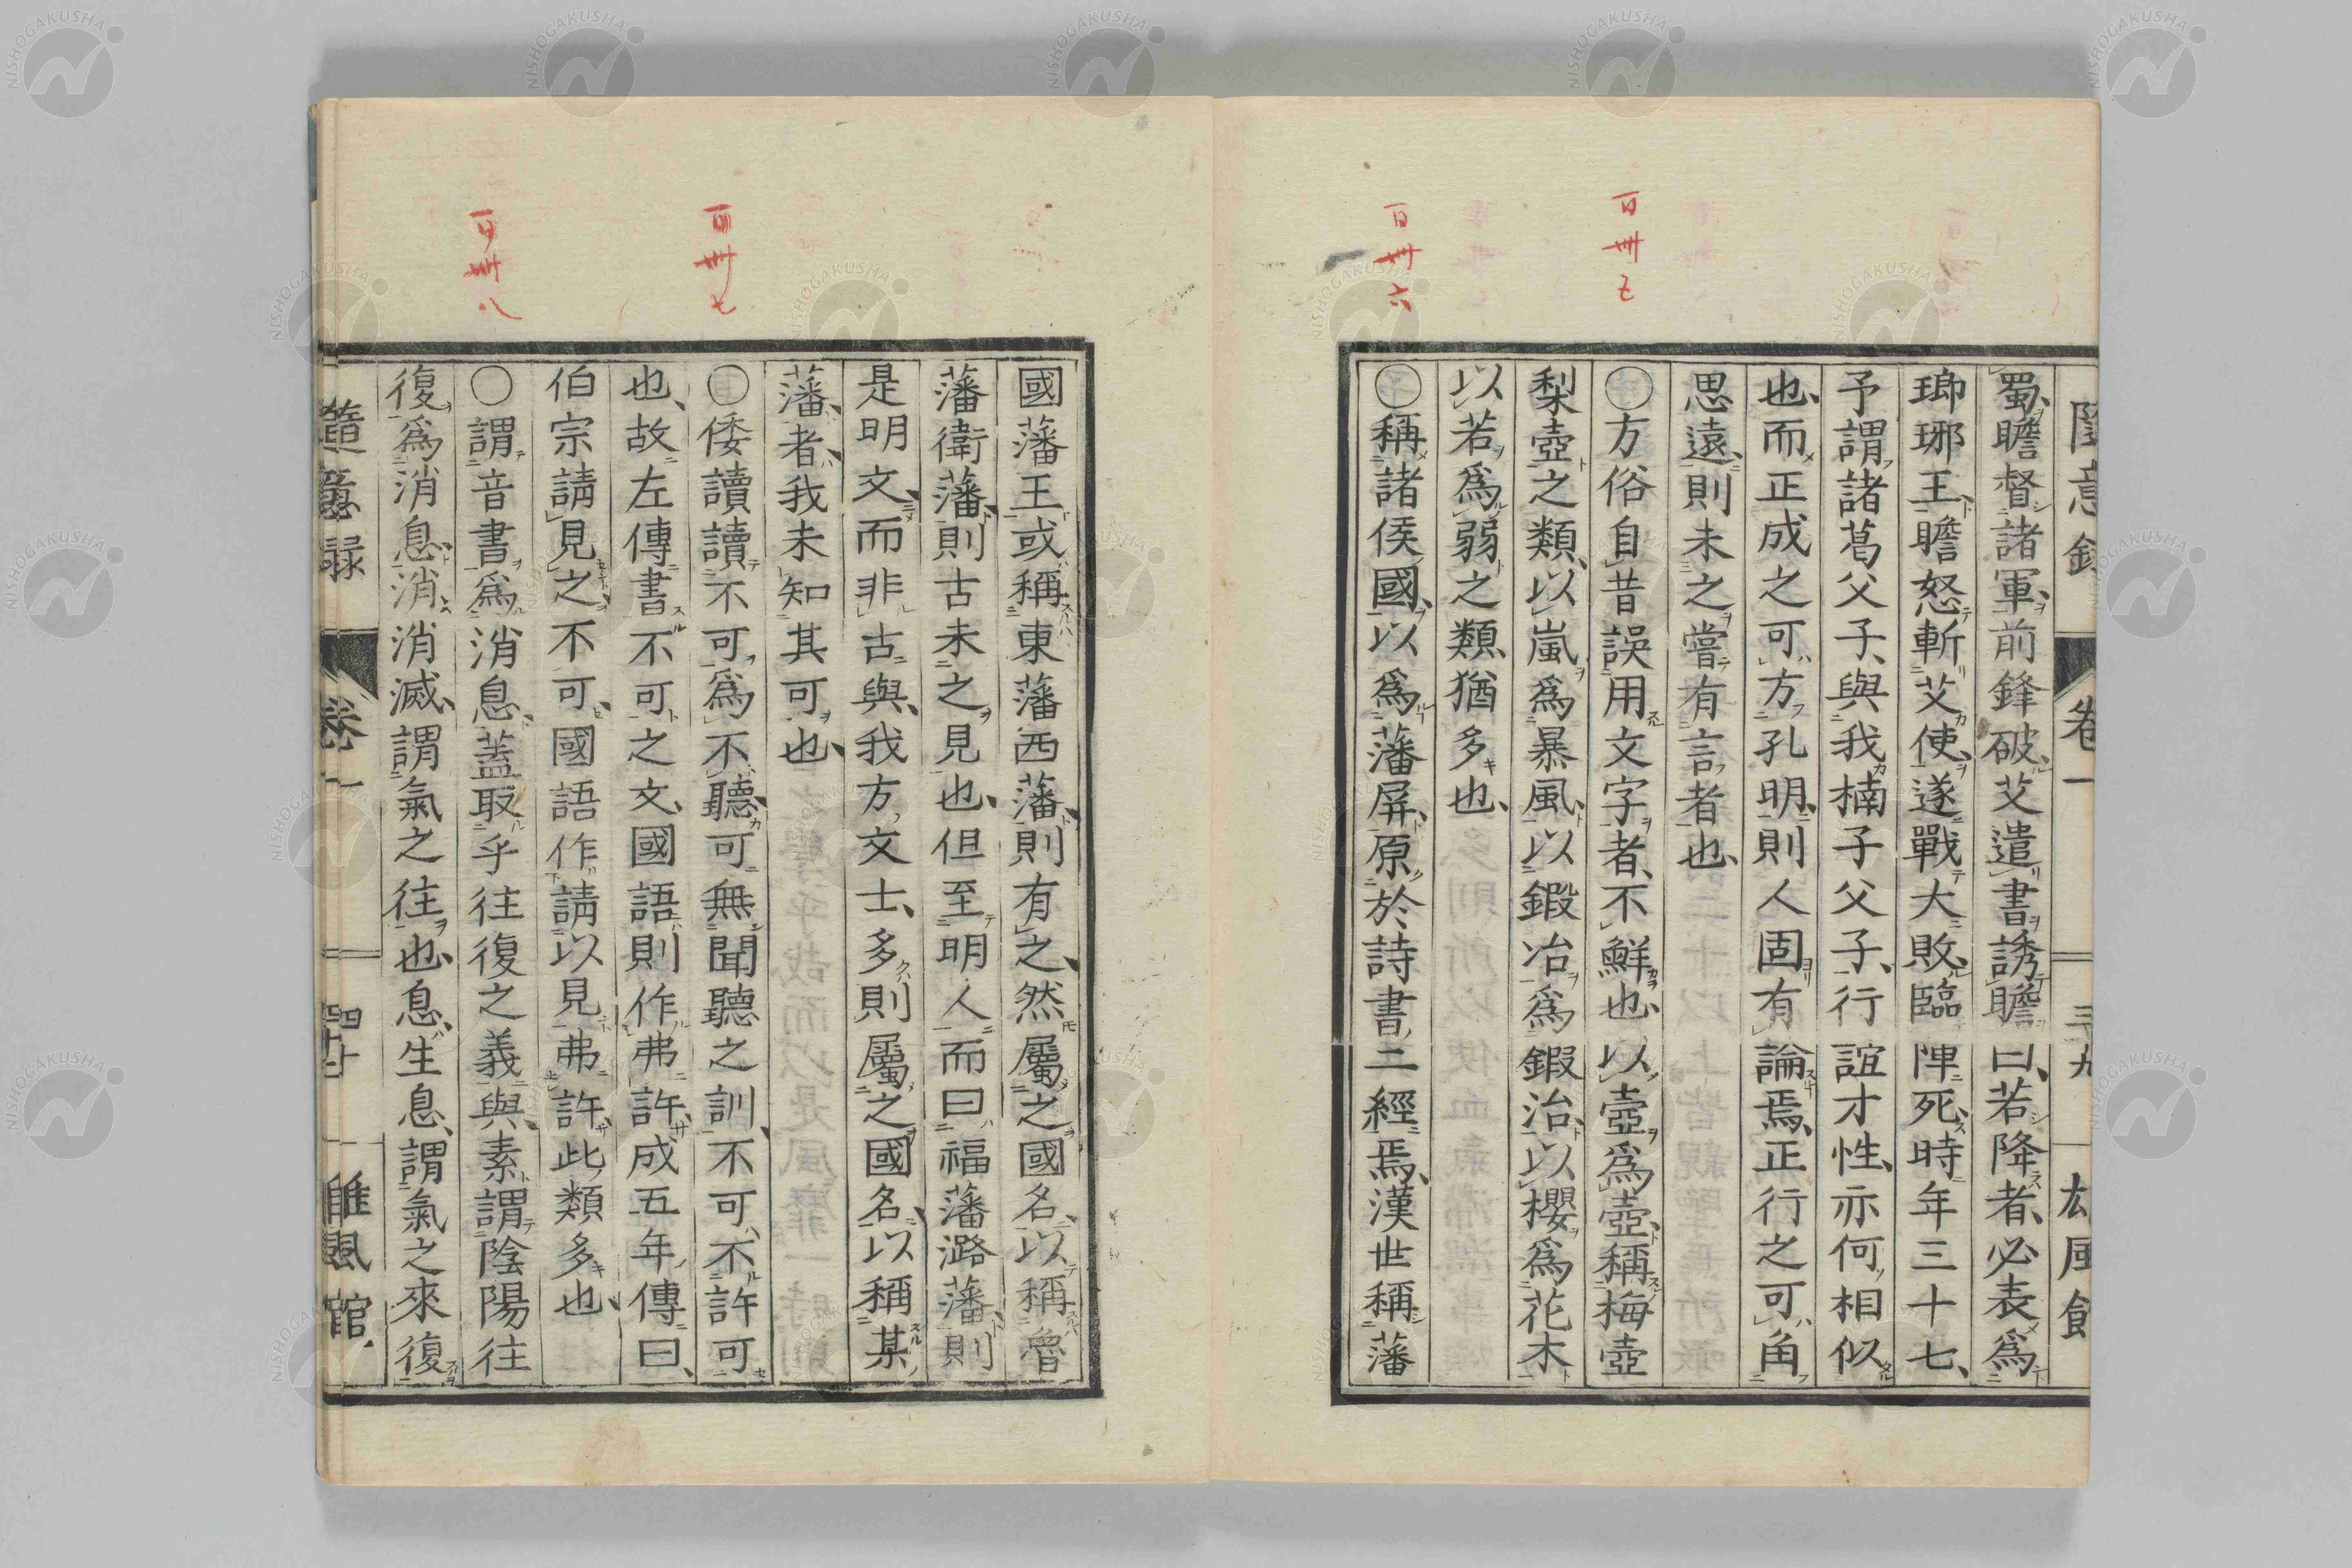 隨意錄 卷一 三九 雄風館
蜀、瞻督諸軍、前鋒破、艾遣書誘瞻曰、若降者、必表爲
瑯琊王、瞻怒斬艾使、遂戰大敗、臨陣死、時年三十七、
予謂諸葛父子、與我楠子父子、行誼才性、亦何相似
也、而正成之可方孔明、則人固有論焉、正行之可角
思遠、則未之嘗有言者也、
百卅五
〇方俗自昔誤用文字者、不鮮也、以壺爲壺、稱梅壺
梨壺之類、以嵐爲暴風、以鍛冶爲鍜治、以櫻爲花木
以若爲弱之類、猶多也、
百卅六
〇稱諸侯國、以爲藩屏、原於詩書二經焉、漢世稱藩
國藩王或稱東藩西藩、則有之、然屬之國名、以稱魯
藩衛藩、則古未之見也、但至明人而曰福藩潞藩、則
是明文、而非古與、我方文士、多則屬之國名、以稱某
藩者、我未知其可也、
百卅七
〇倭讀讀不可爲不聽、可無聞聽之訓、不可不許可
也、故左傳書不可之文、國語則作弗許、成五年傳曰、
伯宗請見之不可、國語作請以見弗許、此類多也、
百卅八
〇謂音書爲消息、蓋取乎往復之義與、素謂陰陽往
復爲消息、消、消滅、謂氣之往也、息、生息、謂氣之來復
隨意錄 卷一 四十 雄風館